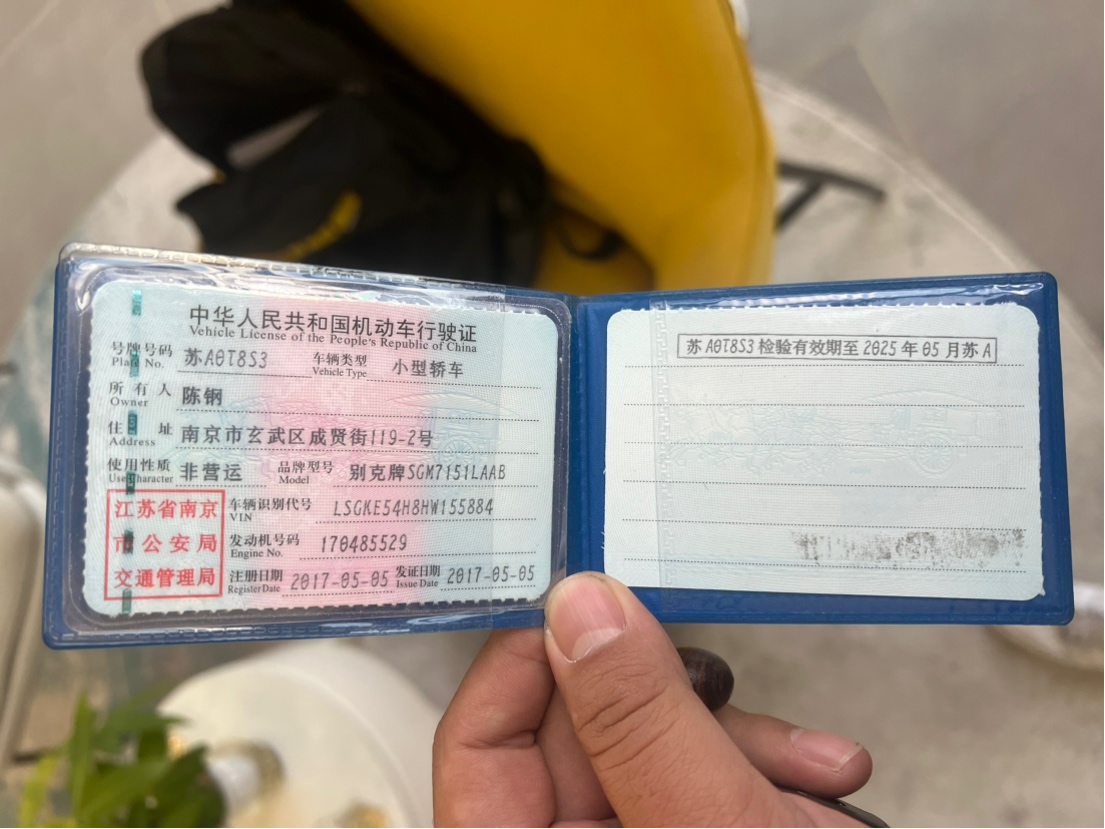 中华人民共和国机动车行驶证
Vehicle License of the People's Republic of China
号牌号码 苏A0T8S3 车辆类型 小型轿车
Plate No. Vehicle Type
所有人 陈钢
Owner
住址 南京市玄武区成贤街119-2号
Address
使用性质 非营运 品牌型号 别克牌SGM7151LAAB
Use Character Model
江苏省南京市公安局交通管理局
车辆识别代号 LSGKE54H8HW155884
VIN
发动机号码 170485529
Engine No.
注册日期 2017-05-05 发证日期 2017-05-05
Register Date Issue Date
苏A0T8S3检验有效期至2025年05月苏A